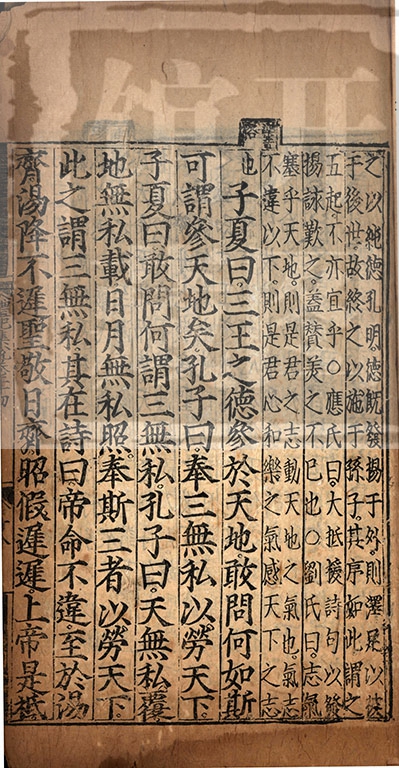 之以純德孔明德既發揚于外。則澤足以被
于後世。故終之以施于孫子。其序如此。謂之
五起。不亦宜乎○應氏曰。大抵援詩句以發
揚詠歎之。蓋贊美之不已也○劉氏曰。志氣
塞乎天地。則是君之志動天地之氣也。氣志
不違以下。則是君心和樂之氣感天下之志
也 子夏曰。三王之德參於天地。敢問何如斯
可謂參天地矣。孔子曰。奉三無私以勞天下。
子夏曰。敢問何謂三無私。孔子曰。天無私覆。
地無私載。日月無私照。奉斯三者以勞天下。
此之謂三無私。其在詩曰。帝命不違。至於湯
齊。湯降不遲。聖敬日齊。昭假遲遲。上帝是祗